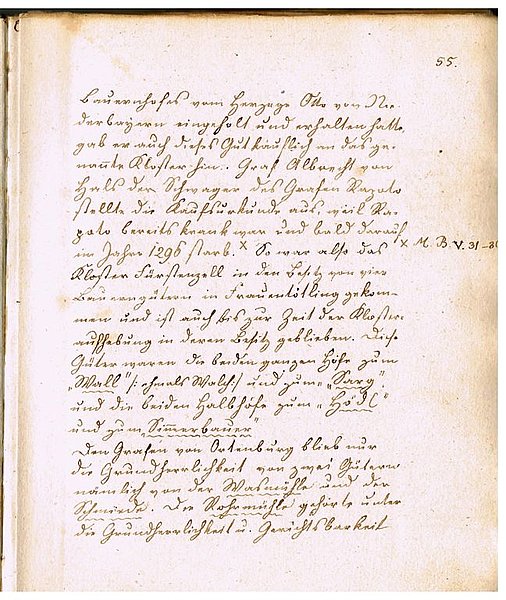 55.
Bauernhofes vom Herzoge Otto von Nie-
derbayern eingeholt und erhalten hatte,
gab er auch dieses Gut käuflich an das ge-
nannte Kloster hin. Graf Albrecht von
Hals der Schwager des Grafen Rapoto
stellte die Kaufsurkunde aus, weil Ra-
poto bereits krank war und bald darauf
im Jahre 1296 starb. × So war also das
× M. B. V. 31-
Kloster Fürstenzell in den Besitz von vier
Bauerngütern in Frauentötling gekom-
men und ist auch bis zur Zeit der Kloster-
aufhebung in deren Besitz geblieben. Diese
Güter waren die beiden ganzen Höfe zum
„Wall" /: ehmals Walch :/ und zum „Sarg",
und die beiden Halbhöfe zum „Hödl"
und zum „Simmerbauer"
Den Grafen von Ortenburg blieb nur
die Grundherrlichkeit von zwei Gütern
nämlich von der Wasmühle und der
Schmiede. Die Rohrmühle gehörte unter
die Grundherrlichkeit u. Gerichtsbarkeit